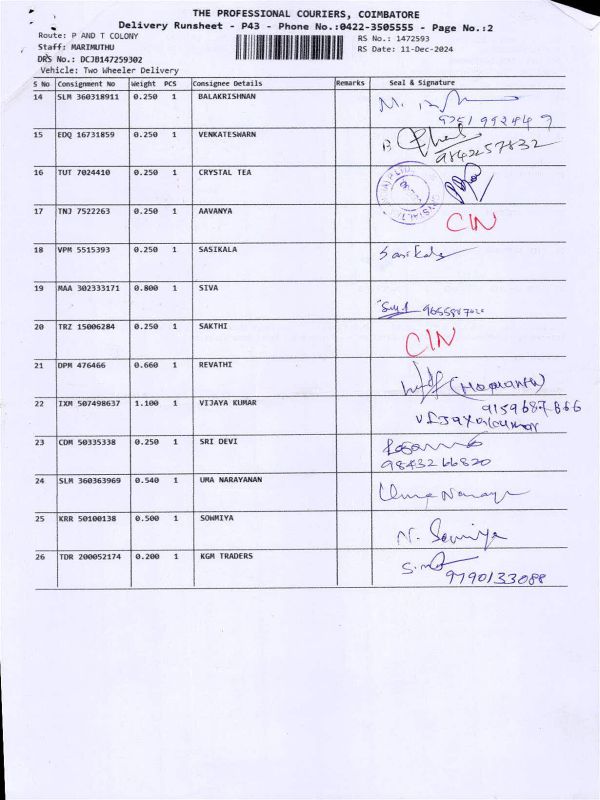 THE PROFESSIONAL COURIERS, COIMBATORE
Delivery Runsheet - P43 - Phone No.:0422-3505555 - Page No.:2
Route: P AND T COLONY
RS No.: 1472593
Staff: MARIMUTHU
RS Date: 11-Dec-2024
DRS No.: DCJB147259302
Vehicle: Two Wheeler Delivery
S No Consignment No Weight PCS Consignee Details Remarks Seal & Signature
14 SLM 360318911 0.250 1 BALAKRISHNAN
15 EDQ 16731859 0.250 1 VENKATESWARN
9842257832
16 TUT 7024410 0.250 1 CRYSTAL TEA
17 TNJ 7522263 0.250 1 AAVANYA
CIN
18 VPM 5515393 0.250 1 SASIKALA Sasikala
19 MAA 302333171 0.800 1 SIVA
20 TRZ 15006284 0.250 1 SAKTHI
CIN
21 DPM 476466 0.660 1 REVATHI
22 IXM 507498637 1.100 1 VIJAYA KUMAR 9159687866
23 CDM 50335338 0.250 1 SRI DEVI
9843266820
24 SLM 360363969 0.540 1 UMA NARAYANAN Uma Narayan
25 KRR 50100138 0.500 1 SOWMIYA
N. Sowmiya
26 TDR 200052174 0.200 1 KGM TRADERS
9790133088